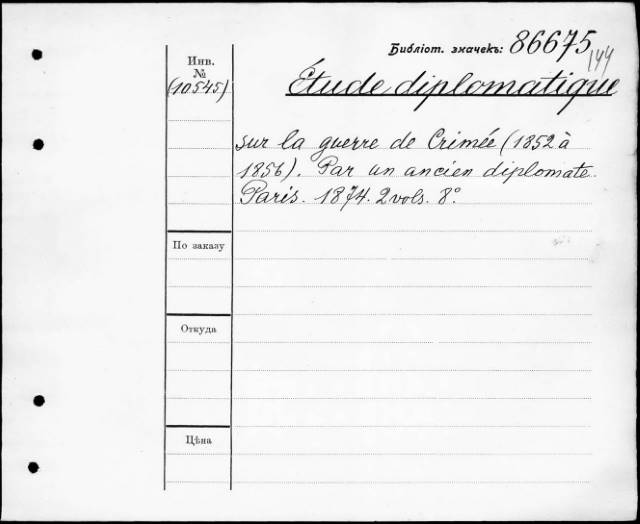 Библіот. значекъ: 86675
144
Инв.
№
(10545)
Étude diplomatique
sur la guerre de Crimée (1852 à
1856). Par un ancien diplomate.
Paris. 1874. 2 vols. 8°.
По заказу
Откуда
Цѣна